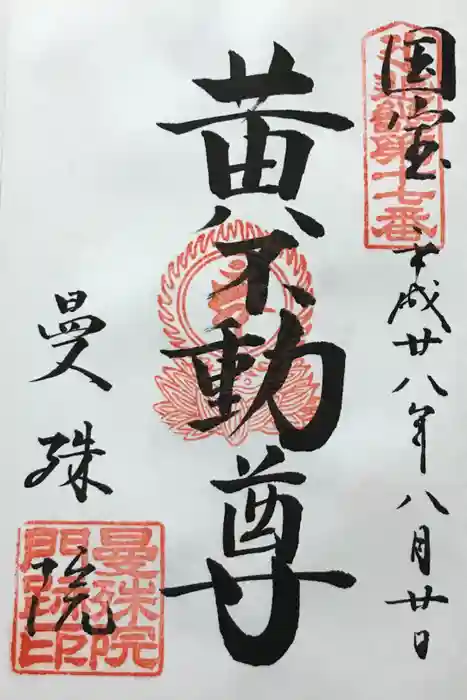 国宝
平成廿八年八月廿日
黄不動尊
曼殊院
第十七番
曼殊院
門跡印